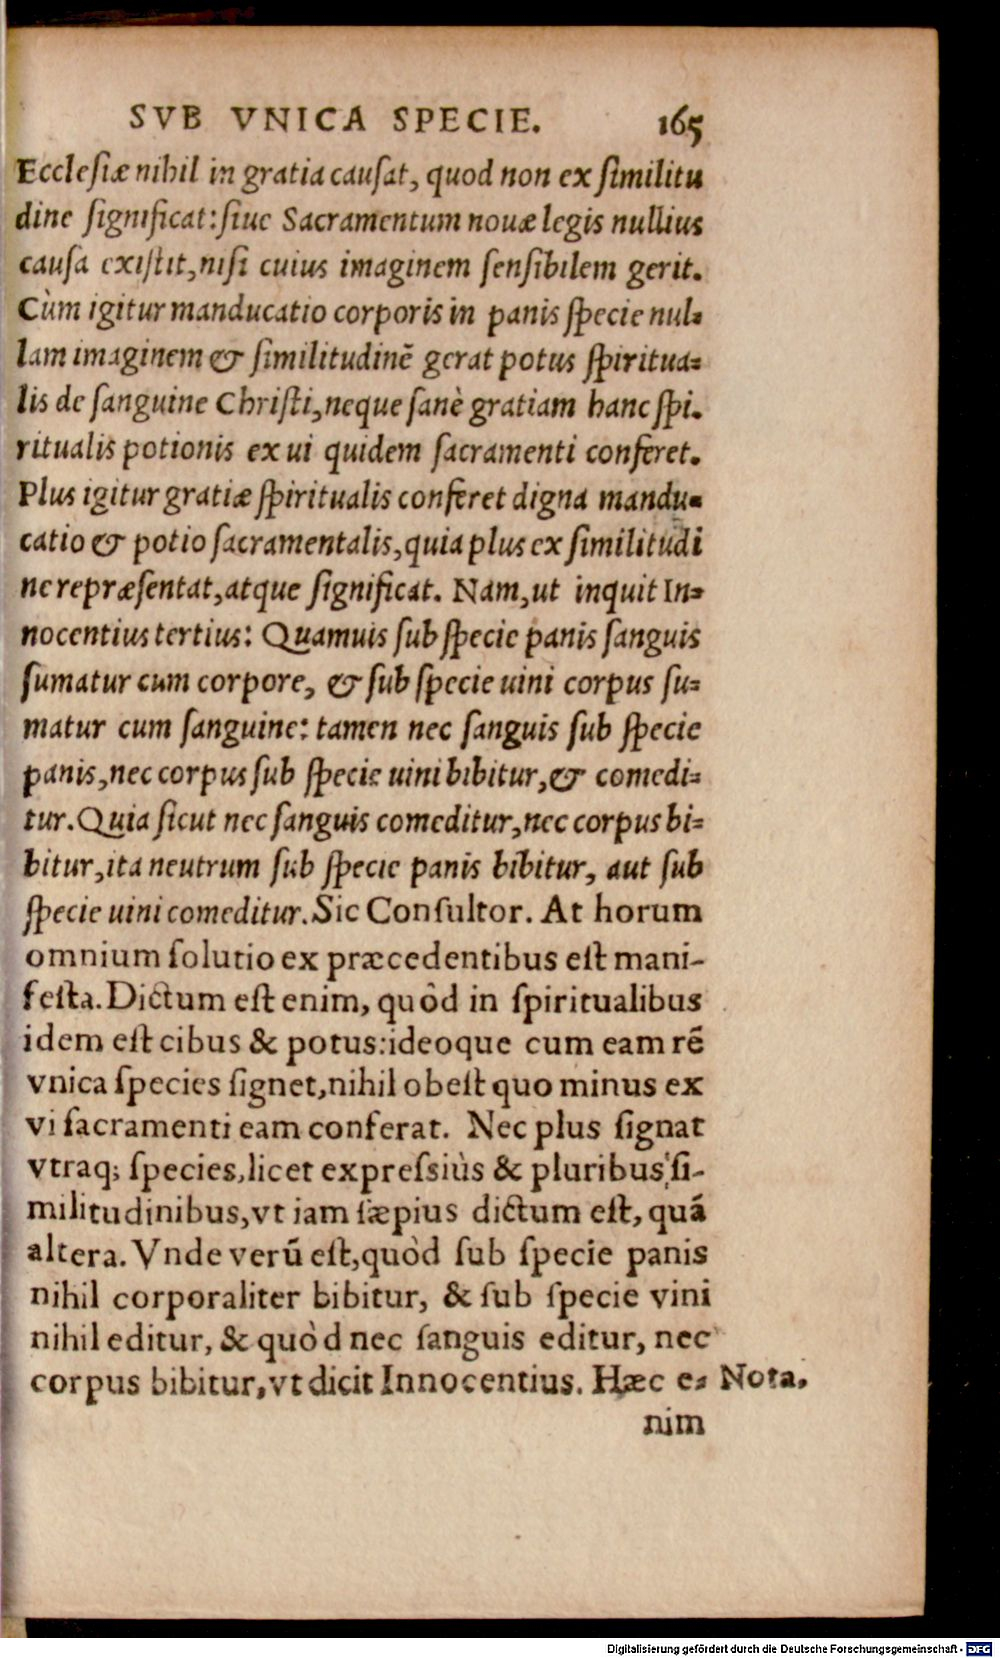 SVB VNICA SPECIE. 165
Ecclesiæ nihil in gratia causat, quod non ex similitu
dine significat: siue Sacramentum nouæ legis nullius
causa existit, nisi cuius imaginem sensibilem gerit.
Cùm igitur manducatio corporis in panis specie nul-
lam imaginem & similitudinē gerat potus spiritua-
lis de sanguine Christi, neque sanè gratiam hanc spi-
ritualis potionis ex ui quidem sacramenti conferet.
Plus igitur gratiæ spiritualis conferet digna mandu-
catio & potio sacramentalis, quia plus ex similitudi
ne repræsentat, atque significat. Nam, ut inquit In-
nocentius tertius: Quamuis sub specie panis sanguis
sumatur cum corpore, & sub specie uini corpus su-
matur cum sanguine: tamen nec sanguis sub specie
panis, nec corpus sub specie uini bibitur, & comedi-
tur. Quia sicut nec sanguis comeditur, nec corpus bi-
bitur, ita neutrum sub specie panis bibitur, aut sub
specie uini comeditur. Sic Consultor. At horum
omnium solutio ex præcedentibus est mani-
festa. Dictum est enim, quòd in spiritualibus
idem est cibus & potus: ideoque cum eam rē
vnica species signet, nihil obest quo minus ex
vi sacramenti eam conferat. Nec plus signat
vtraq; species, licet expressiùs & pluribus si-
militudinibus, vt iam sæpius dictum est, quā
altera. Vnde verū est, quòd sub specie panis
nihil corporaliter bibitur, & sub specie vini
nihil editur, & quòd nec sanguis editur, nec
corpus bibitur, vt dicit Innocentius. Hæc e- Nota.
nim
Digitalisierung gefördert durch die Deutsche Forschungsgemeinschaft - DFG